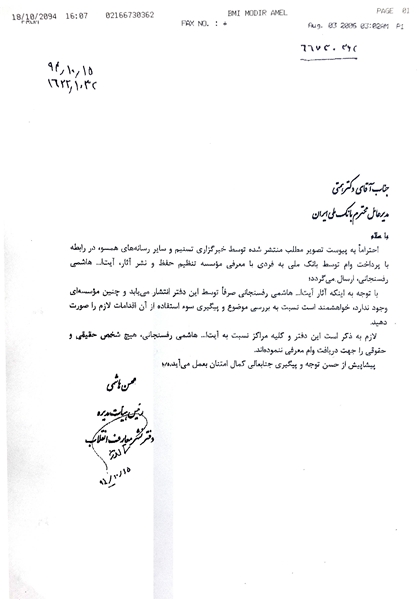 18/10/2094 16:07 02166730362 BMI MODIR AMEL PAGE 01
FAX NO. : + Aug. 03 2006 03:02AM P1
۹۴/۱۰/۱۵
جناب آقای دکتر همتی
مدیرعامل محترم بانک ملی ایران
با سلام
احتراماً به پیوست تصویر مطلب منتشر شده توسط خبرگزاری تسنیم و سایر رسانه‌های همسو، در رابطه
با پرداخت وام توسط بانک ملی به فردی با معرفی مؤسسه تنظیم حفظ و نشر آثار، آیت‌ا... هاشمی
رفسنجانی، ارسال می‌گردد؛
با توجه به اینکه آثار آیت‌ا... هاشمی رفسنجانی صرفاً توسط این دفتر انتشار می‌یابد و چنین مؤسسه‌ای
وجود ندارد، خواهشمند است نسبت به بررسی موضوع و پیگیری سوء استفاده از آن اقدامات لازم را صورت
دهید.
لازم به ذکر است این دفتر و کلیه مراکز نسبت به آیت‌ا... هاشمی رفسنجانی، هیچ شخص حقیقی و
حقوقی را جهت دریافت وام معرفی ننموده‌اند.
پیشاپیش از حسن توجه و پیگیری جنابعالی کمال امتنان بعمل می‌آید.
محسن هاشمی
رئیس هیات مدیره
دفتر نشر معارف انقلاب
۹۴/۱۰/۱۵